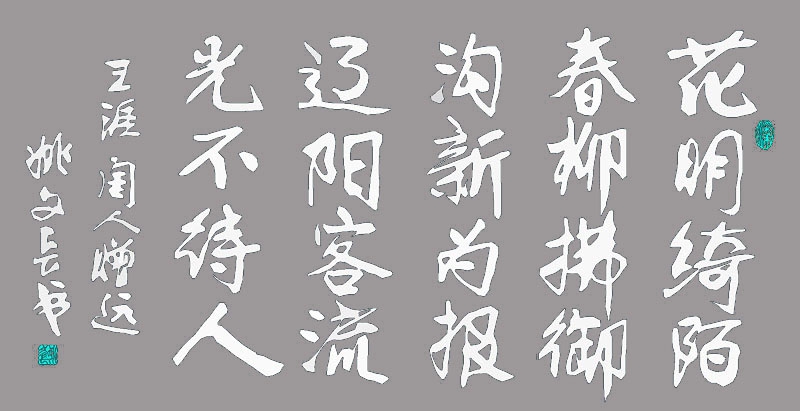 花明绮陌
春柳拂御
沟新为报
辽阳客流
光不待人
王涯闺人赠远
姚文长书